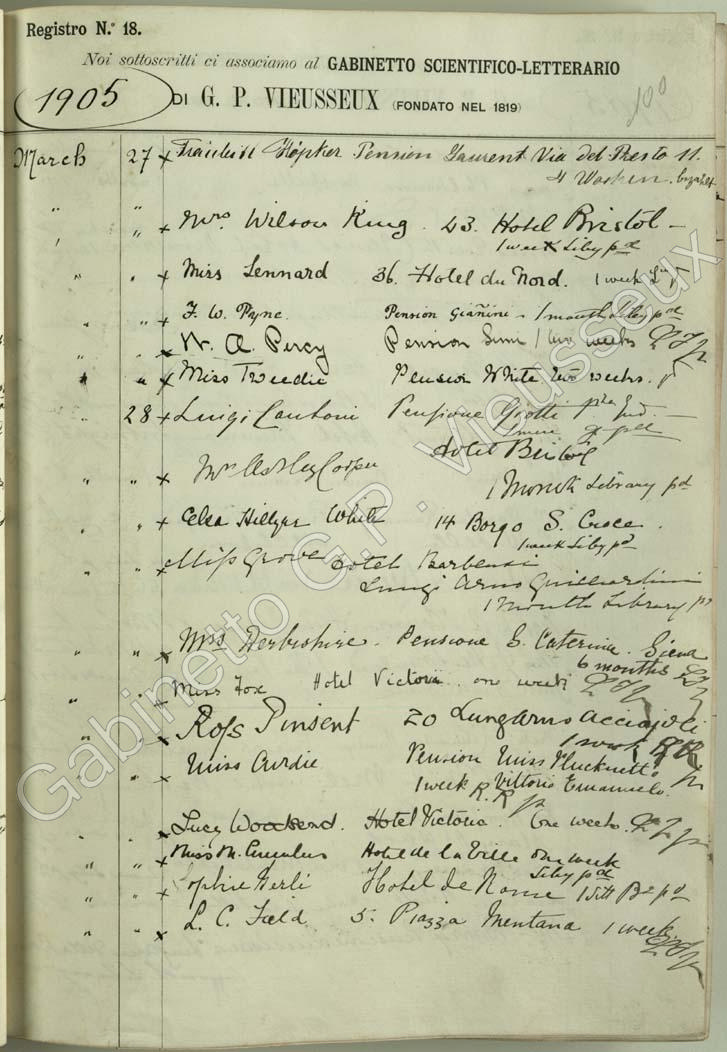 Registro N.° 18.
Noi sottoscritti ci associamo al GABINETTO SCIENTIFICO-LETTERARIO
1905 DI G. P. VIEUSSEUX (FONDATO NEL 1819)
100
March 27 x Fräulein Höpker Pension Laurent Via del Presto 11.
4 Wochen. bezahlt
" " x Mrs Wilson King. 43. Hotel Bristol —
1 week Liby pd
" " x Miss Lennard 36. Hotel du Nord. 1 week
" " x F. W. Payne. Pension Giannini - 1 month Liby pd
" " x W. A. Percy Pension two weeks
" " x Miss Tweedie Pension White two weeks.
" 28 x Luigi Cantoni Pensione Giotti
" " x Mr Astley Cooper Hotel Bristol
1 Month Library pd
" " x Hillyar White 14 Borgo S. Croce.
1 week Liby pd
" " x Miss Grove Hotel Barbensi
Lungo Arno Guicciardini
1 Month Library pd
" " x Mrs Derbishire. Pensione S. Caterina. Siena
6 months
" " x Miss Fox Hotel Victoria. one week
" " x Ross Pinsent 20 Lungarno Acciajoli
1 week
" " x Miss Curdie Pension Miss Plucknett
1 week R.R Vittorio Emanuele.
" " x Lucy Hotel Victoria. One weeks.
" " x Miss M. Hotel de la Ville one week
Liby pd
" " x Sophie Hotel de Rome pd
" " x L. C. Field 5. Piazza Mentana 1 week
Gabinetto G.P. Vieusseux